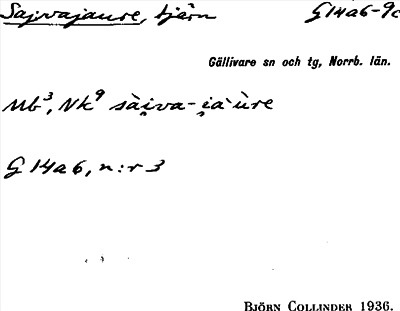 Sajvajaure, tjärn G14a6-9c
Gällivare sn och tg, Norrb. län.
Mb³, Nk⁹ sài̯va-i̯a·ùre
G 14a6, n:r 3
BJÖRN COLLINDER 1936.